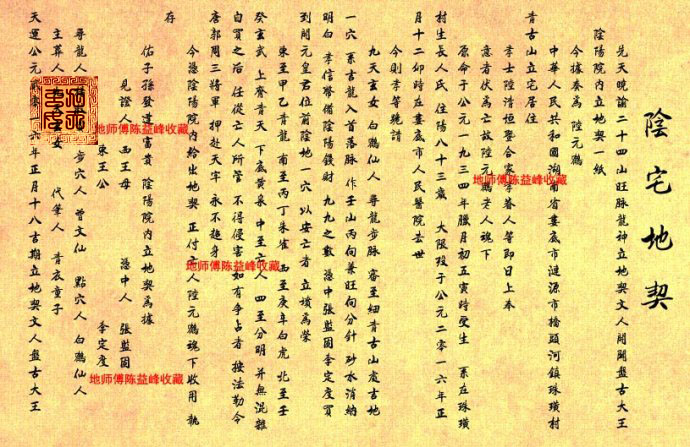 陰宅地契
兑天晚諭二十四山旺脉龍神立地契文人開闢盤古大王
陰陽院內立地契一紙
今據奏為 陸元鵬
中華人民共和國湖南省婁底市漣源市橋頭河鎮珠璜村
青古山立宅居住
孝士陸清垣暨合家孝眷人等即日上奉
意者伏為亡故陸元鵬老人魂下
原命于公元一九三四年臘月初五寅時受生 系在珠璜
村生長人氏 住陽八十三歲 大限殁于公元二零一六年正
月十二卯時在婁底市人民醫院去世
今則孝等虔請
九天玄女 白鶴仙人 尋龍步脉 審至細青古山處吉地
一穴 系古龍入首落脉 作壬山丙向兼旺向分針 砂水消納
明白 孝信幣備陰陽錢財 九九之數 憑中張監固李定度買
到開元皇君位前陰地一穴 以安亡者 立墳為塋
東至甲乙青龍 南至丙丁朱雀 西至庚辛白虎 北至壬
癸玄武 上齊青天 下底黄泉 中至亡人 四至分明 并無混雜
自買之后 任從亡人所管 不得侵害 如有爭占者 按法勒令
唐郭周三將軍 押赴天牢 永不超身
今憑陰陽院內給出地契 正付亡人陸元鵬魂下收用 執
存
佑子孫發達富貴 陰陽院內立地契為據
見證人 西王母 憑中人 張監固
東王公 李定度
尋龍人 步穴人 曾文仙 點穴人 白鶴仙人
主葬人 代筆人 青衣童子
天運公元 六年正月十八吉期立地契文人盤古大王
地师傅陈益峰收藏
地师傅陈益峰收藏
地师傅陈益峰收藏
地师傅陈益峰收藏